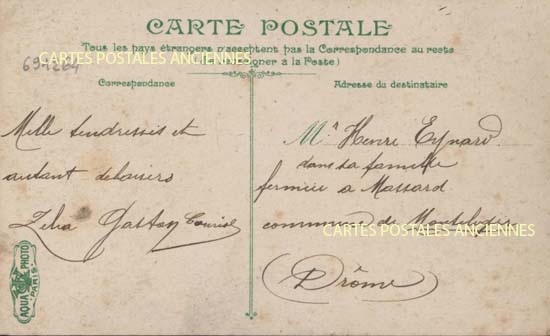 CARTE POSTALE
Tous les pays étrangers n'acceptent pas la Correspondance au recto
(Se renseigner à la Poste)
CARTES POSTALES ANCIENNES
Correspondance
Adresse du destinataire
Mille tendresses et
autant de baisers
Zelia Gaston
Mr Henri Eynard
dans sa famille
fermier a Massard
commune de
CARTES POSTALES ANCIENNES
(Drôme)
AQUA PHOTO
PARIS